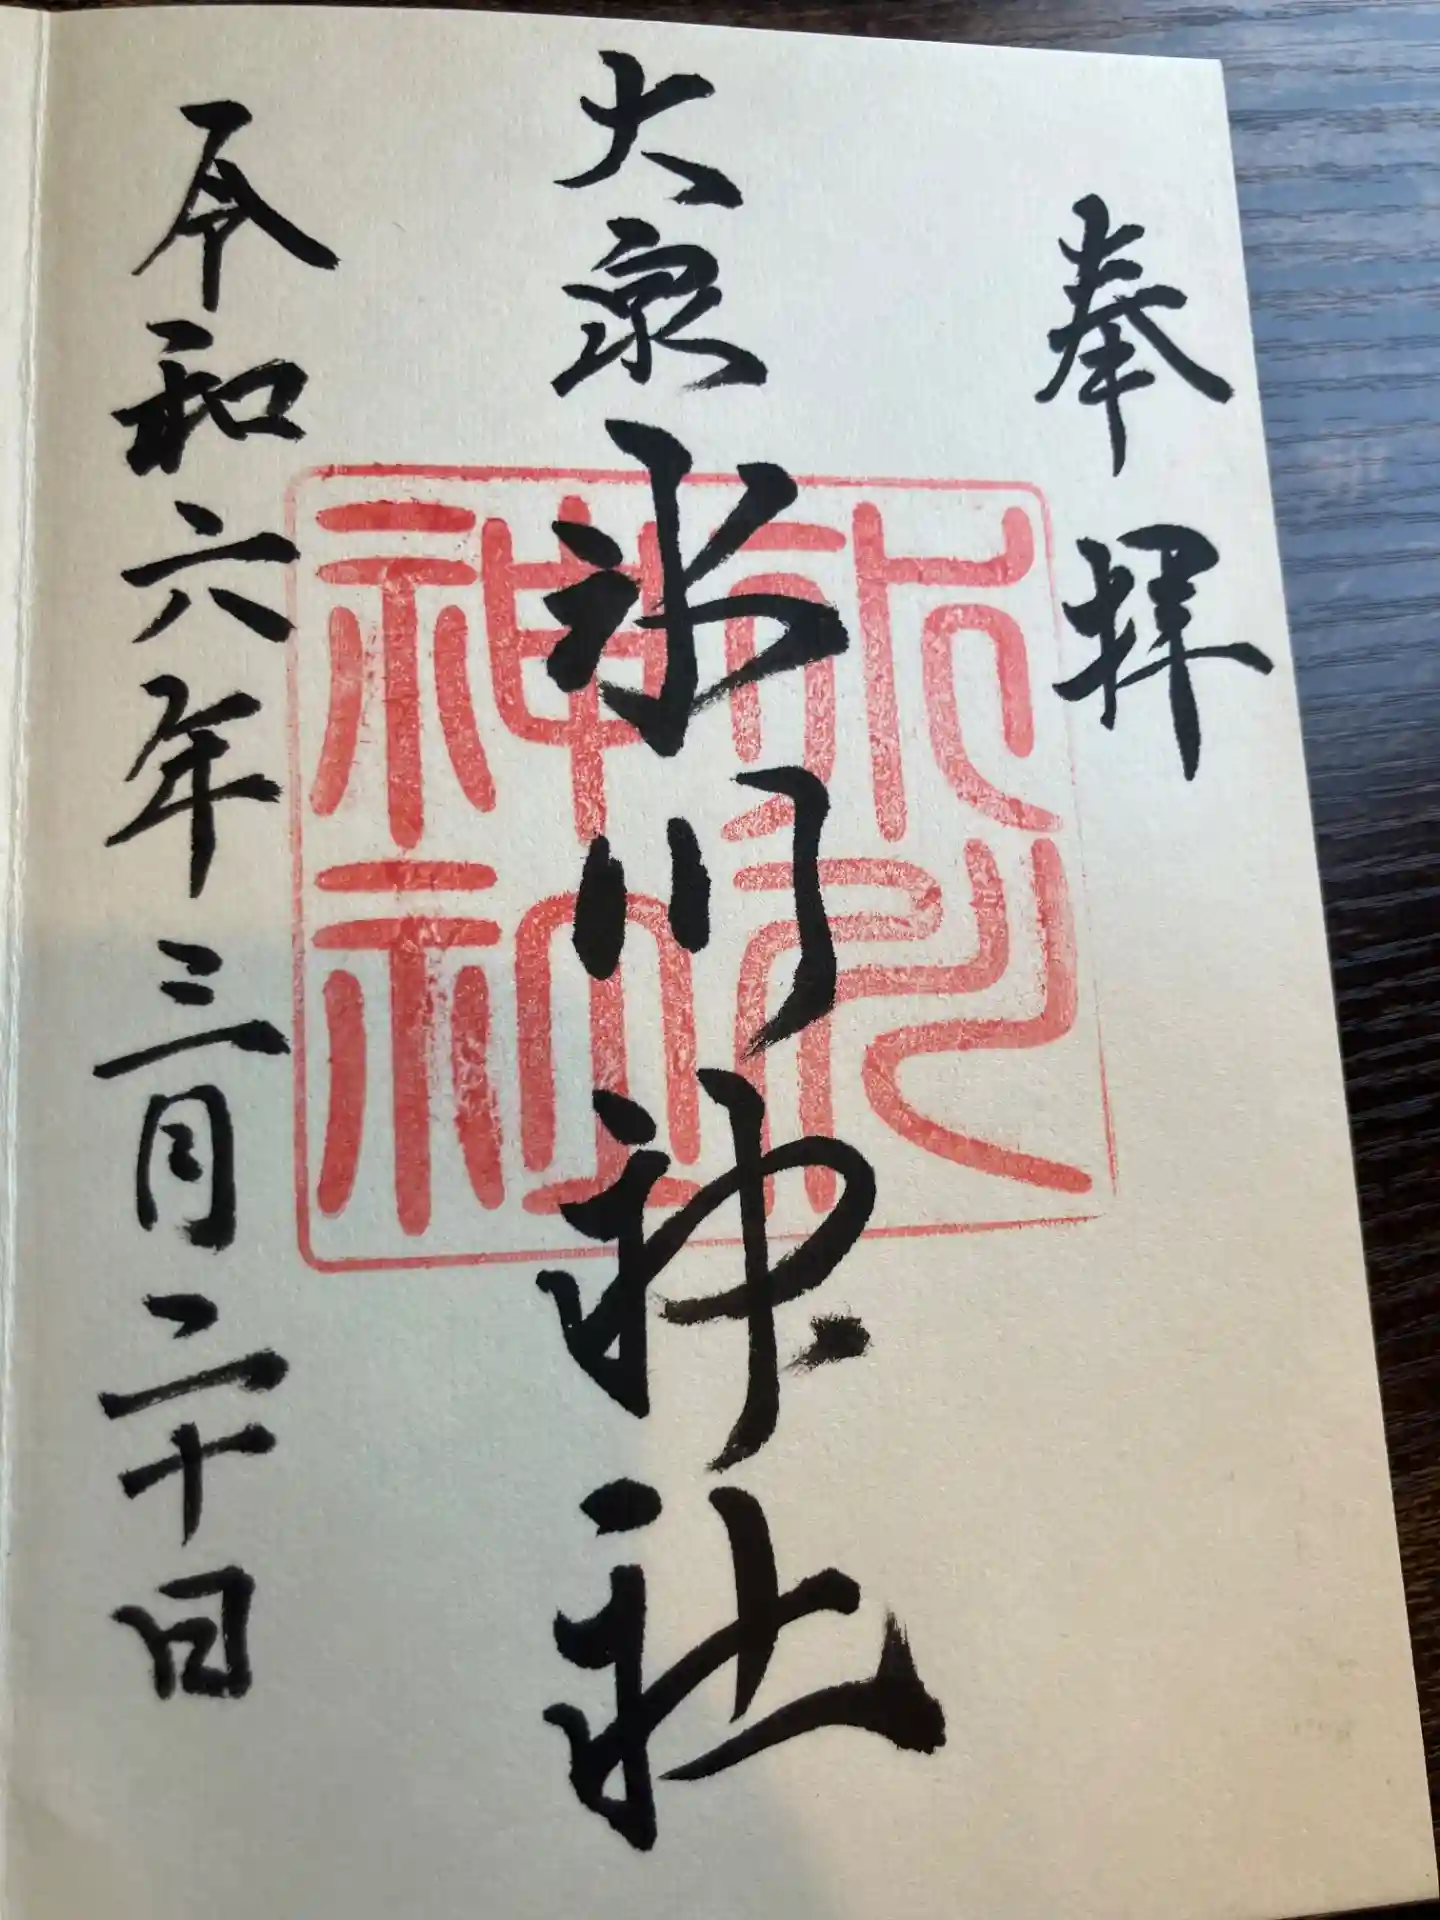 奉拝
大泉氷川神社
令和六年三月二十日